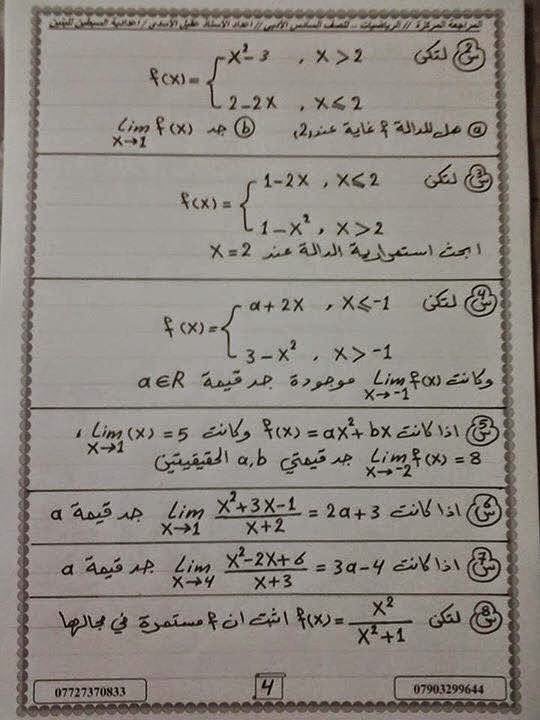 المراجعة المركزة // الرياضيات .. للصف السادس الأدبي // اعداد الأستاذ عقيل الأسدي // اعدادية السبطين للبنين
س2 لتكن f(x) = { x²-3 , x>2
2-2x , x⩽2
ⓐ هل للدالة f غاية عند 2, ⓑ جد lim f(x) x→1
س3 لتكن f(x) = { 1-2x , x⩽2
1-x² , x>2
ابحث استمرارية الدالة عند x=2
س4 لتكن f(x) = { a+2x , x⩽-1
3-x² , x>-1
وكانت lim f(x) x→-1 موجودة جد قيمة a∈R
س5 اذا كانت f(x)=ax²+bx وكانت lim(x) x→1 =5 ،
lim f(x) x→-2 =8 جد قيمتي a,b الحقيقيتين
س6 اذا كانت lim x→1 (x²+3x-1)/(x+2) = 2a+3 جد قيمة a
س7 اذا كانت lim x→4 (x²-2x+6)/(x+3) = 3a-4 جد قيمة a
س8 لتكن f(x)= x²/(x²+1) اثبت ان f مستمرة في مجالها
07727370833 4 07903299644